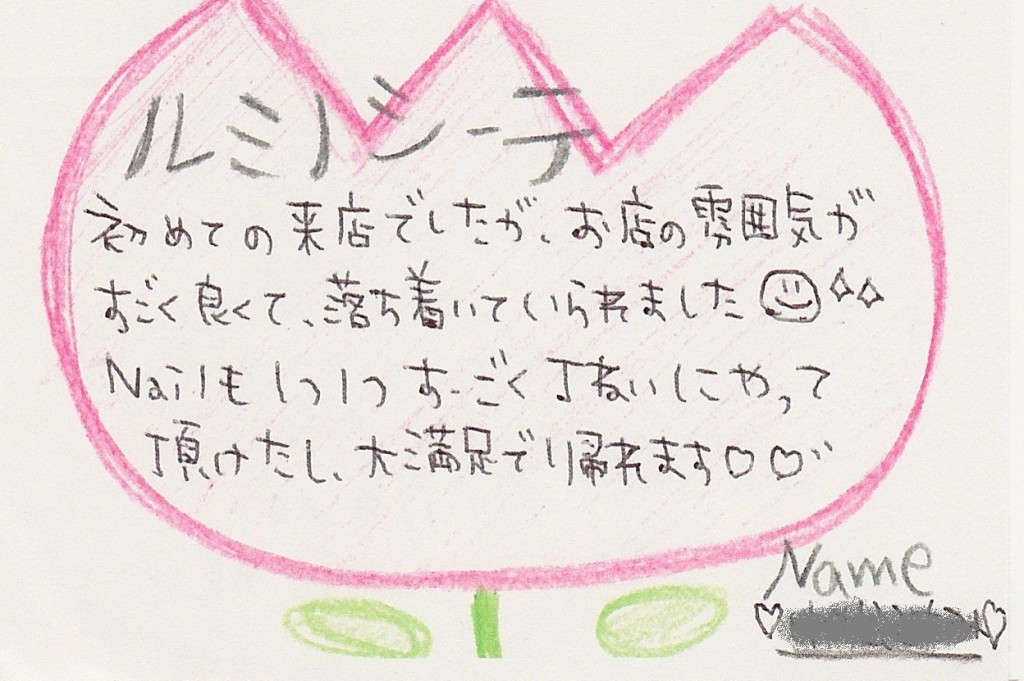 ルミノシーテ
初めての来店でしたが、お店の雰囲気が
すごく良くて、落ち着いていられました
Nailもしつしつすーごく丁ねいにやって
頂けたし、大満足で帰れます♡♡
Name